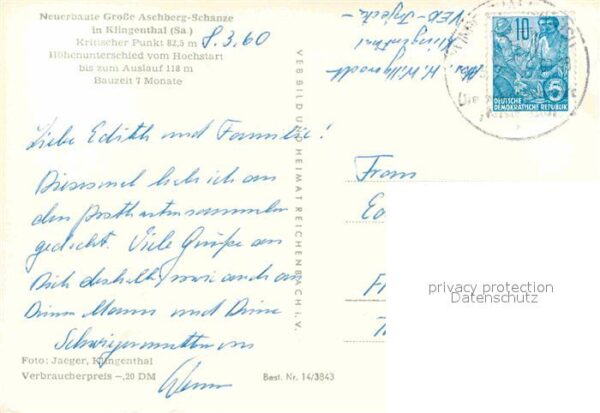 Neuerbaute Große Aschberg-Schanze
in Klingenthal (Sa.)
Kritischer Punkt 82,5 m
Höhenunterschied vom Hochstart
bis zum Auslauf 118 m
Bauzeit 7 Monate
8.3.60
Liebe Edith und Familie!
Diesesmal habe ich an
den Postkartensammler
gedacht. Viele Grüße an
Dich deshalb, sowie auch an
Deinen Mann und Deine
Schwiegermutter von
Foto: Jaeger, Klingenthal
Verbraucherpreis -,20 DM
Best. Nr. 14/3843
VEB BILD UND HEIMAT REICHENBACH i. V.
Abs. H.
Klingenthal
VEB
10
DEUTSCHE
DEMOKRATISCHE REPUBLIK
Frau
privacy protection
Datenschutz